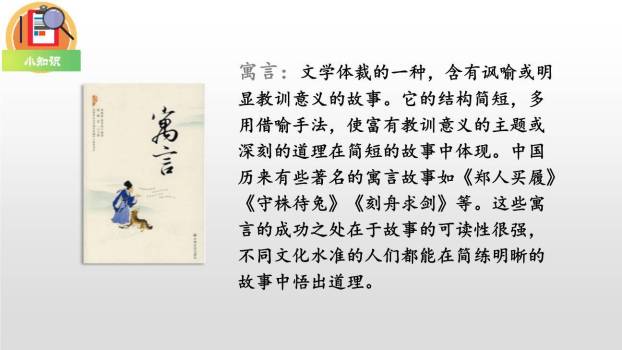 小知识
寓言：文学体裁的一种，含有讽喻或明
显教训意义的故事。它的结构简短，多
用借喻手法，使富有教训意义的主题或
深刻的道理在简短的故事中体现。中国
历来有些著名的寓言故事如《郑人买履》
《守株待兔》《刻舟求剑》等。这些寓
言的成功之处在于故事的可读性很强，
不同文化水准的人们都能在简练明晰的
故事中悟出道理。
寓言